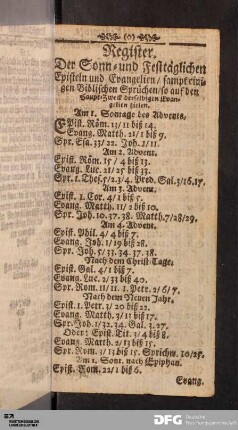 (o)
Register.
Der Sonn- und Festtäglichen
Episteln und Evangelien / sampt eini-
gen Biblischen Sprüchen / so auf den
Haupt-Zweck derselbigen Evan-
gelien zielen.
Am 1. Sonnage des Advents.
Epist. Röm. 13/11 biß 14.
Evang. Matth. 21/1 biß 9.
Spr. Esa. 33/22. Joh. 1/11.
Am 2. Advent.
Epist. Röm. 15/4 biß 13.
Evang. Luc. 21/25 biß 33.
Spr. 1. Thes. 5/2.3/4. Pred. Sal. 3/16.17.
Am 3. Advent.
Epist. 1. Cor. 4/1 biß 5.
Evang. Matth. 11/2 biß 10.
Spr. Joh. 10.37.38. Matth. 7/28/29.
Am 4. Advent.
Epist. Phil. 4/4 biß 7.
Evang. Joh. 1/19 biß 28.
Spr. Joh. 5/33.34.37.38.
Nach dem Christ-Tage.
Epist. Gal. 4/1 biß 7.
Evang. Luc. 2/33 biß 40.
Spr. Rom. 11/11. 1. Petr. 2/6/7.
Nach dem Neuen Jahr.
Epist. 1. Petr. 3/20 biß 22.
Evang. Matth. 3/13 biß 17.
Spr. Joh. 1/32.34. Gal. 3.27.
Oder: Epist. Tit. 3/4 biß 8.
Evang. Matth. 2/13 biß 15.
Spr. Rom. 5/13 biß 15. Sprichw. 10/25.
Am 1. Sont. nach Epiphan.
Epist. Rom. 12/1 biß 6.
Evang.
DFG
Deutsche
Forschungsgemeinschaft